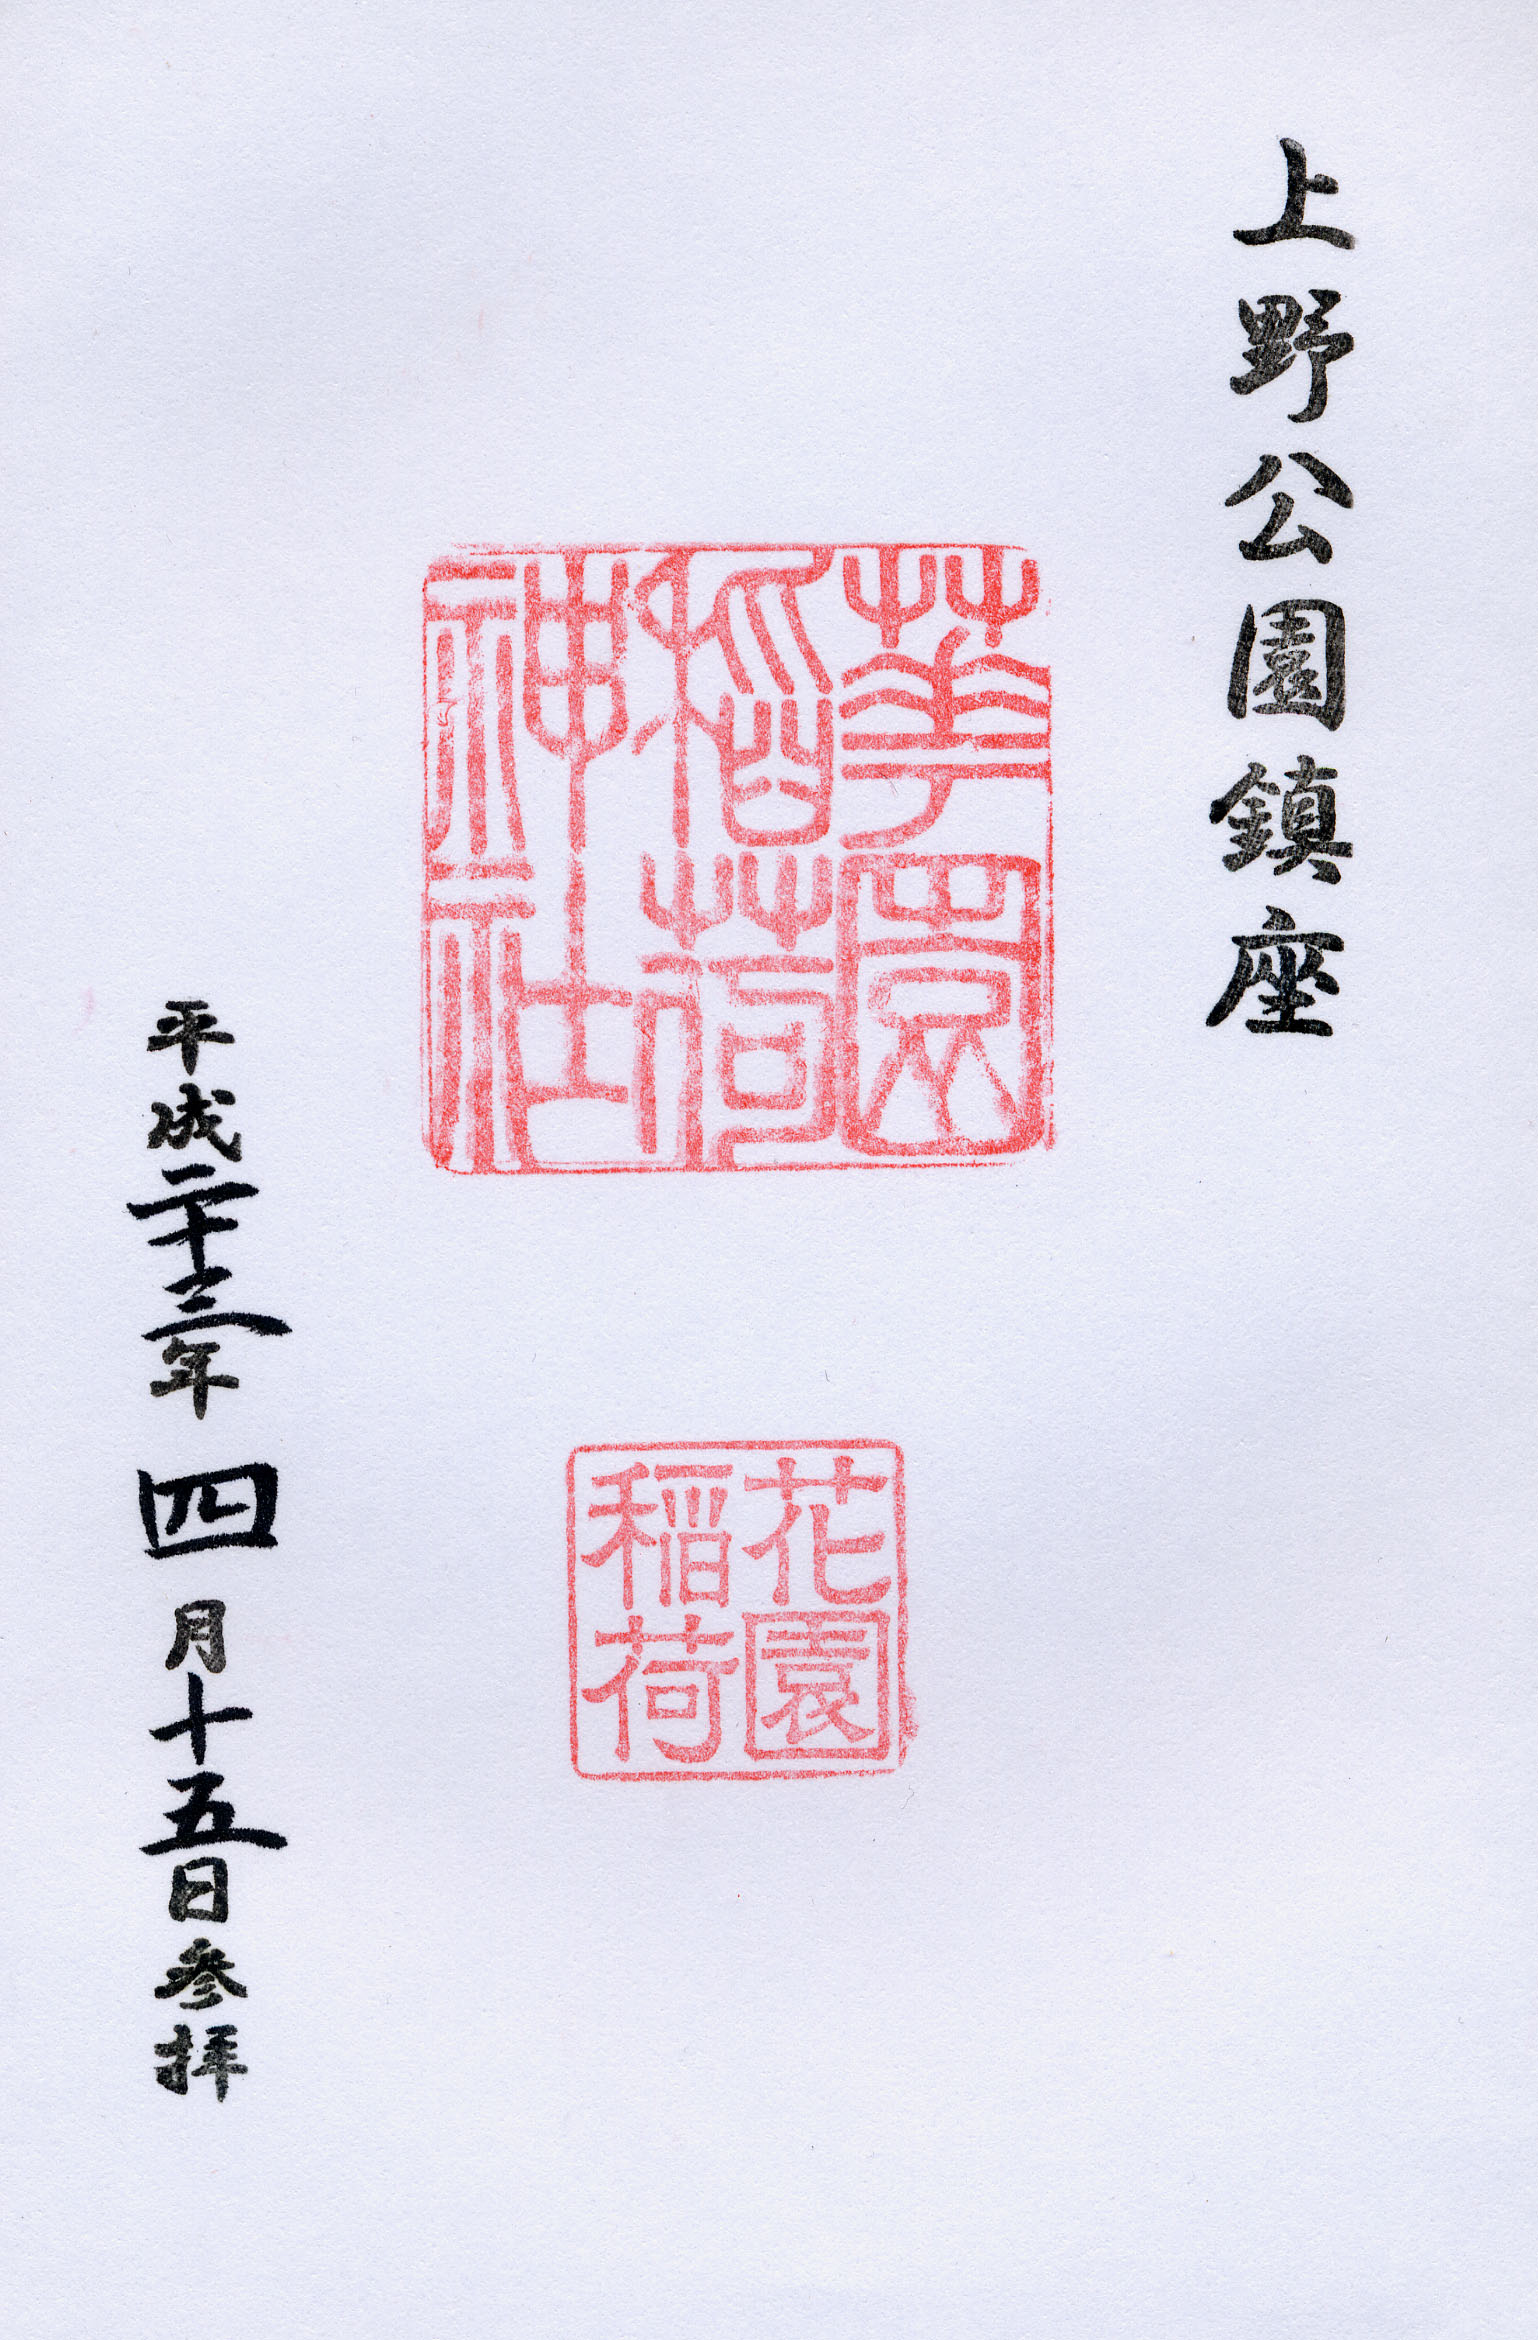 上野公園鎮座
花園
稲荷
神社
花園
稲荷
平成二十三年四月十五日参拝